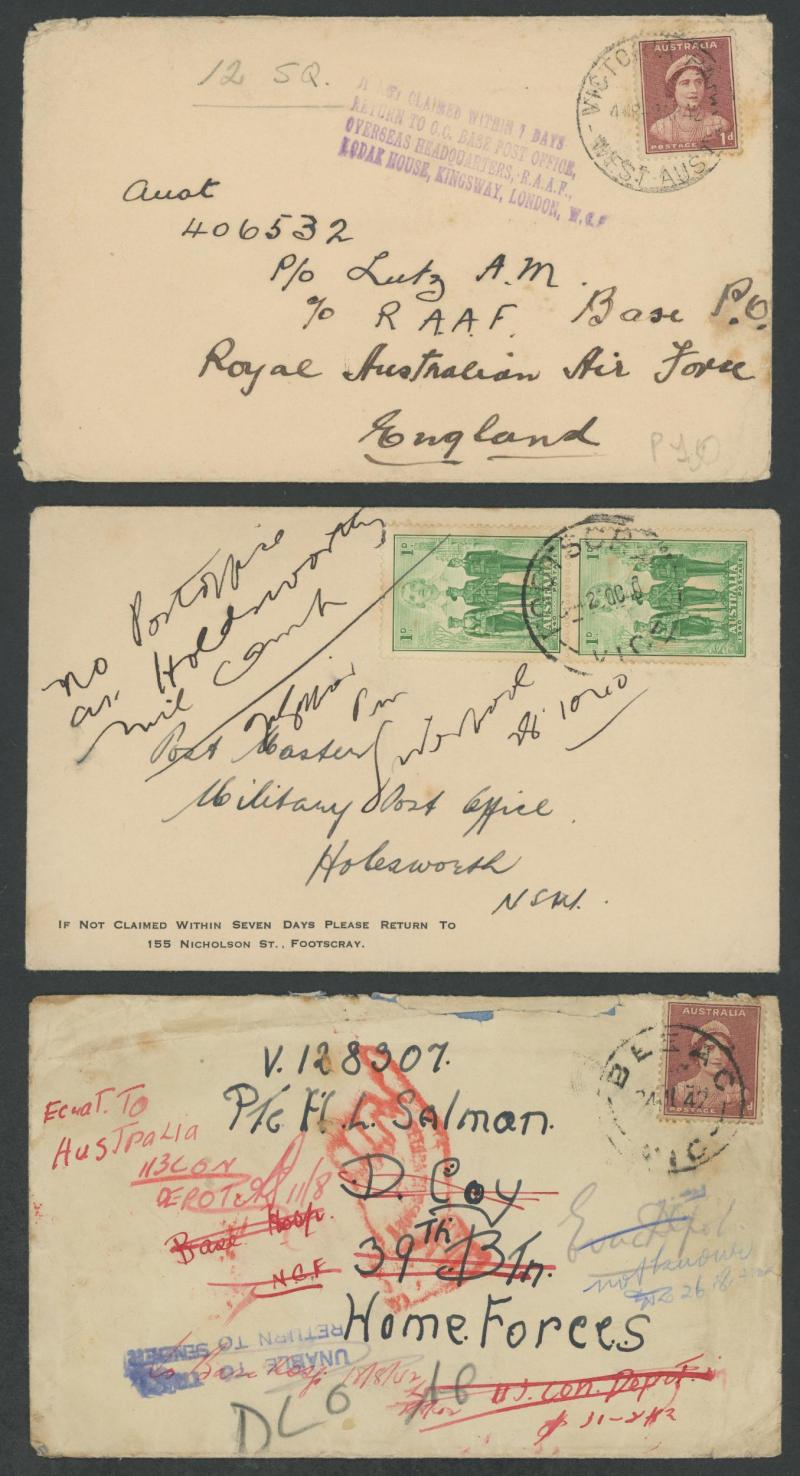 12 SQ.
CLAIMED WITHIN 7 DAYS
RETURN TO O.C. BASE POST OFFICE,
OVERSEAS HEADQUARTERS, R.A.A.F.,
KODAK HOUSE, KINGSWAY, LONDON, W.C.
AUSTRALIA
1d
POSTAGE
WEST AUST
Aust
406532
P/O Lutz A.M.
c/o R.A.A.F. Base P.O.
Royal Australian Air Force
England
No Postoffice
as Holdsworthy
mil Camp
1D
1D
AUSTRALIA
POSTAGE
1940
VIC
Post Master
Military Post Office
Holesworth
NSW.
IF NOT CLAIMED WITHIN SEVEN DAYS PLEASE RETURN TO
155 NICHOLSON ST., FOOTSCRAY.
AUSTRALIA
BEEAC
42
VIC
V.128307.
Pte H.L. Salman.
D. Coy
39th Btn.
Home Forces
Ecuat. To
Australia
113 CON
DEPOT 11/8
Base Hosp.
N.G.F
not known
UNABLE TO
RETURN TO SENDER
Con. Depot.
DLO